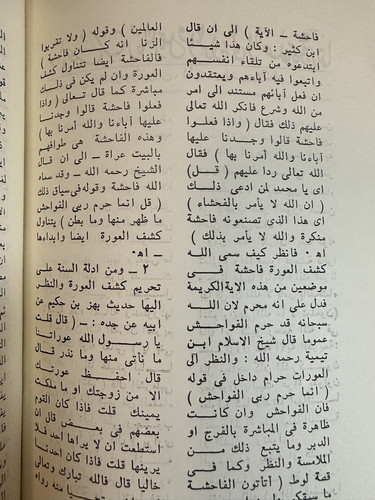 فاحشة ــ الآية ) الى ان قال
ابن كثير : وكان هذا شيئا
ابتدعوه من تلقاء انفسهم
واتبعوا فيه آباءهم ويعتقدون
ان فعل آبائهم مستند الى امر
من الله وشرع فانكر الله تعالى
عليهم ذلك فقال ( واذا فعلوا
فاحشة قالوا وجدنا عليها
آباءنا والله أمرنا بها ) فقال
الله تعالى ردا عليهم ( قل )
اى يا محمد لمن ادعى ذلك
( ان الله لا يأمر بالفحشاء )
اى هذا الذى تصنعونه فاحشة
منكرة والله لا يأمر بذلك )
اهـ . فانظر كيف سمى الله
كشف العورة فاحشة فى
موضعين من هذه الاية الكريمة
فدل على انه محرم لان الله
سبحانه قد حرم الفواحش
عموما قال شيخ الاسلام ابن
تيمية رحمه الله : والنظر الى
العورات حرام داخل فى قوله
( انما حرم ربى الفواحش )
فان الفواحش وان كانت
ظاهرة فى المباشرة بالفرج او
الدبر وما يتبع ذلك من
الملامسة والنظر وكما فى
قصة لوط ( أتأتون الفاحشة
ما سبقكم
العالمين ) وقوله ( ولا تقربوا
الزنا انه كان فاحشة )
فالفاحشة ايضا تتناول كشف
العورة وان لم يكن فى ذلك
مباشرة كما قال تعالى ( واذا
فعلوا فاحشة قالوا وجدنا
عليها آباءنا والله أمرنا بها )
وهذه الفاحشة هى طوافهم
بالبيت عراة ــ الى ان قال
الشيخ رحمه الله ــ وقد سماه
الله فاحشة وقوله فى سياق ذلك
( قل انما حرم ربى الفواحش
ما ظهر منها وما بطن ) يتناول
كشف العورة ايضا وابداءها
ــ اهـ .
٢ ــ ومن ادلة السنة على
تحريم كشف العورة والنظر
اليها حديث بهز بن حكيم عن
ابيه عن جده : ــ ( قال قلت
يا رسول الله عوراتنا
ما نأتى منها وما نذر قال
قال احفظ عورتك
الا من زوجتك او ما ملكت
يمينك قلت فاذا كان القوم
بعضهم فى بعض قال ان
استطعت ان لا يراها احد فلا
يرينها قلت فاذا كان احدنا
خاليا قال فالله تبارك وتعالى
منه رواه